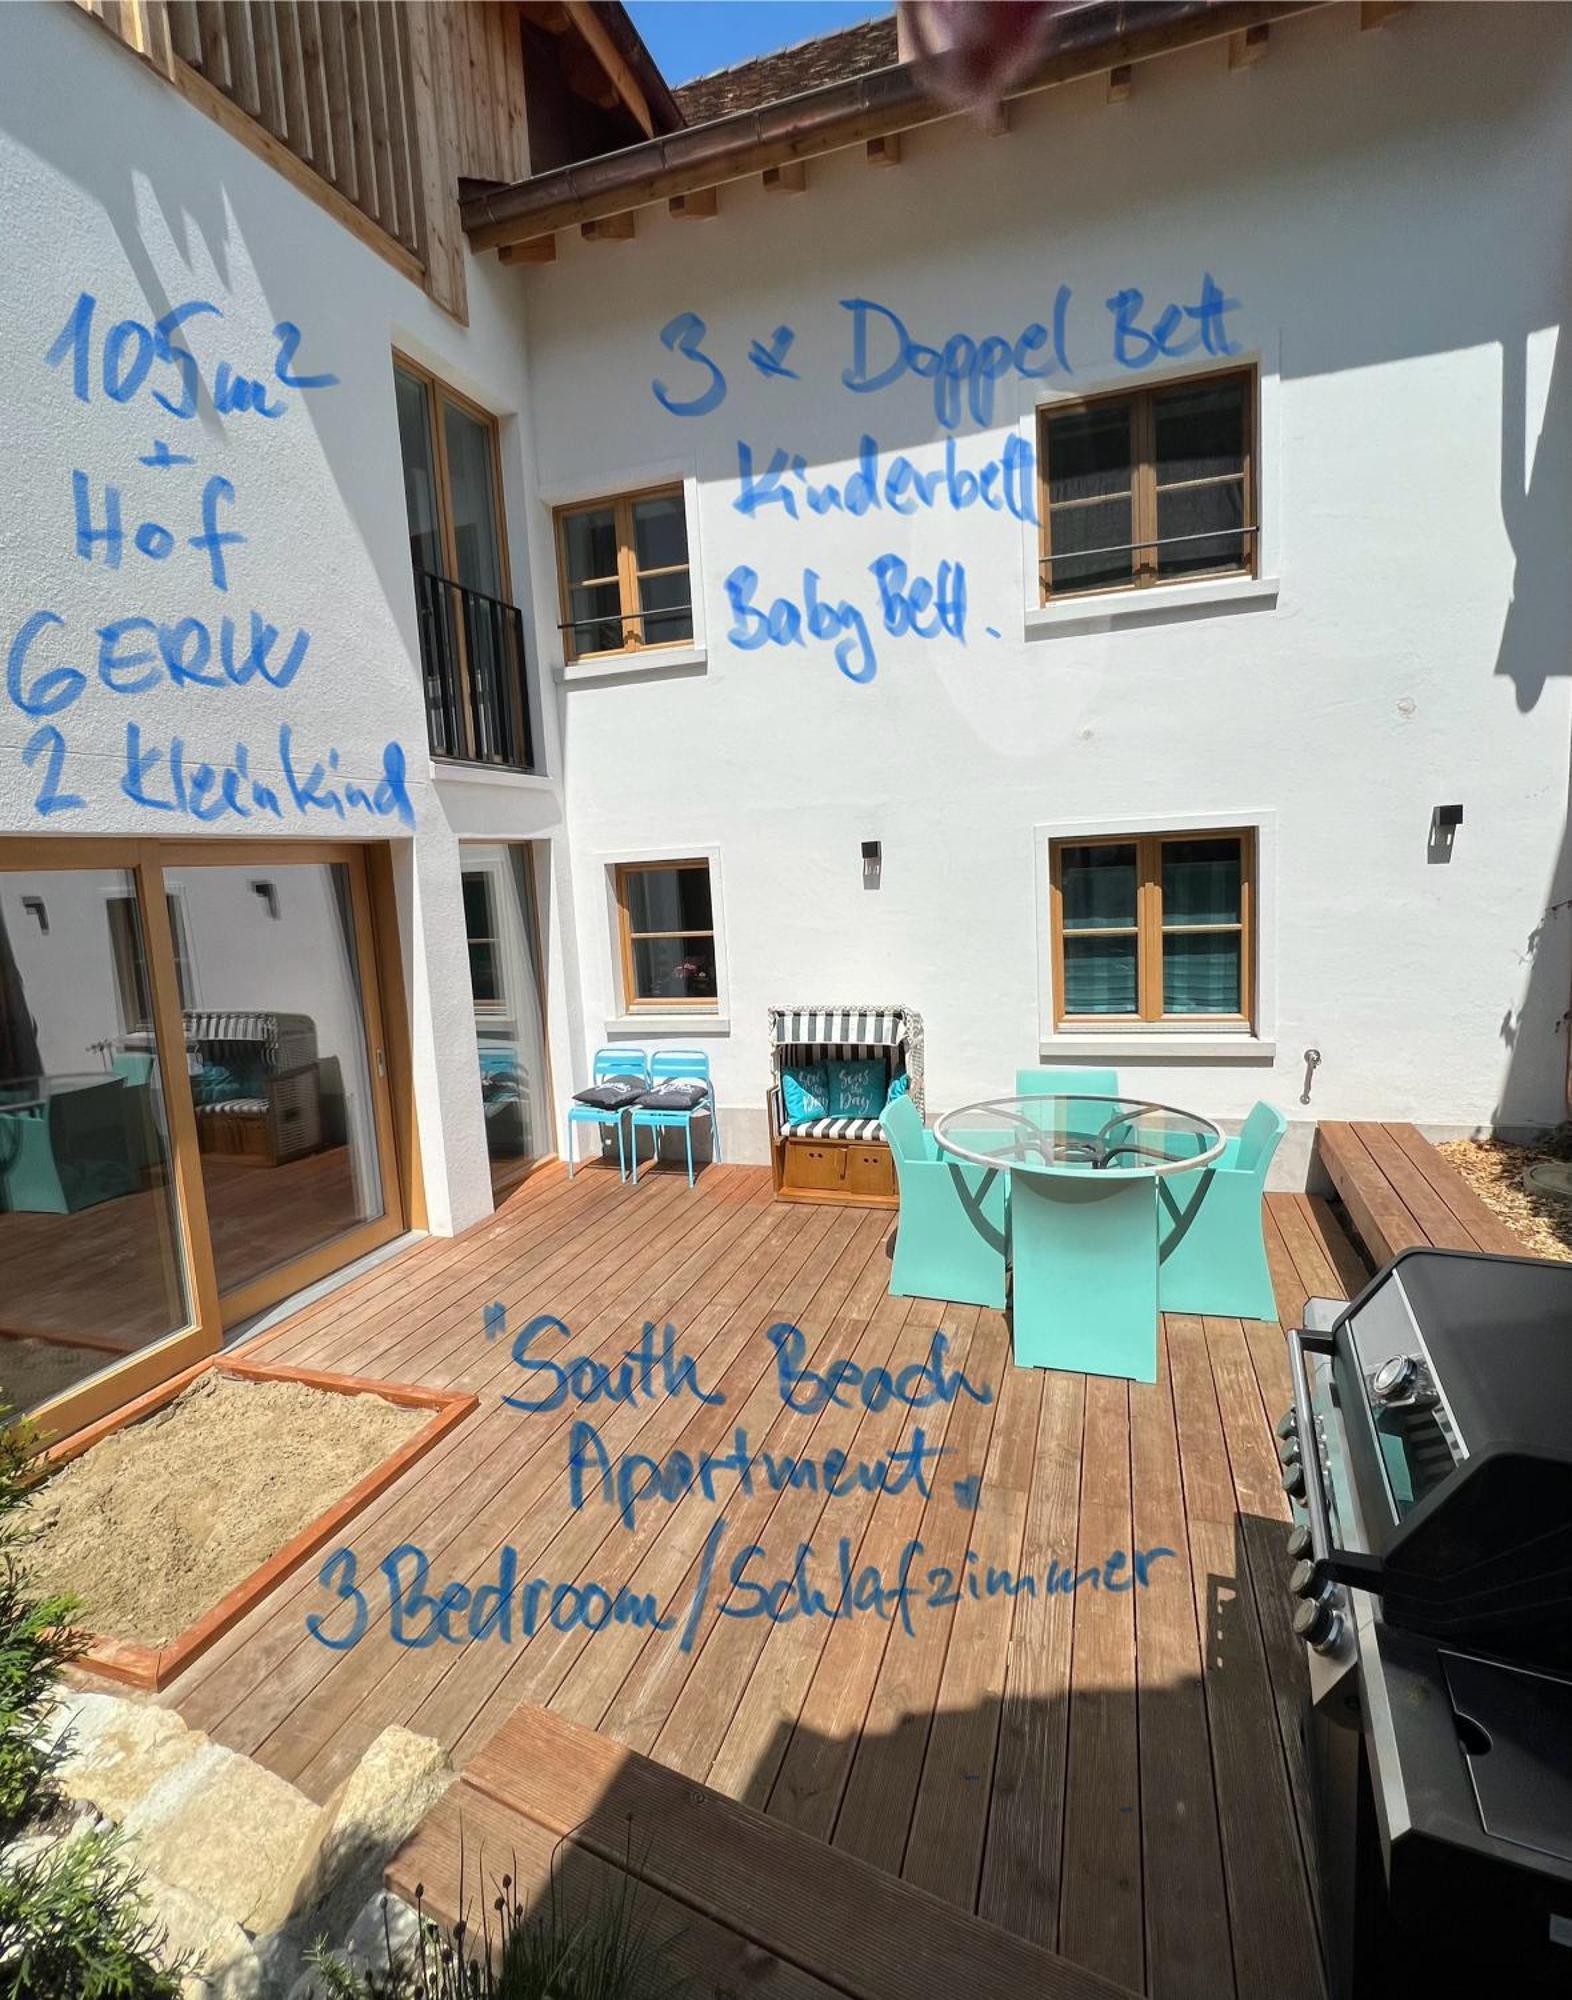 105m²
+
Hof
6 ERW
2 Kleinkind
3 x Doppel Bett
Kinderbett
Baby Bett.
"South Beach
Apartment"
3 Bedroom/Schlafzimmer